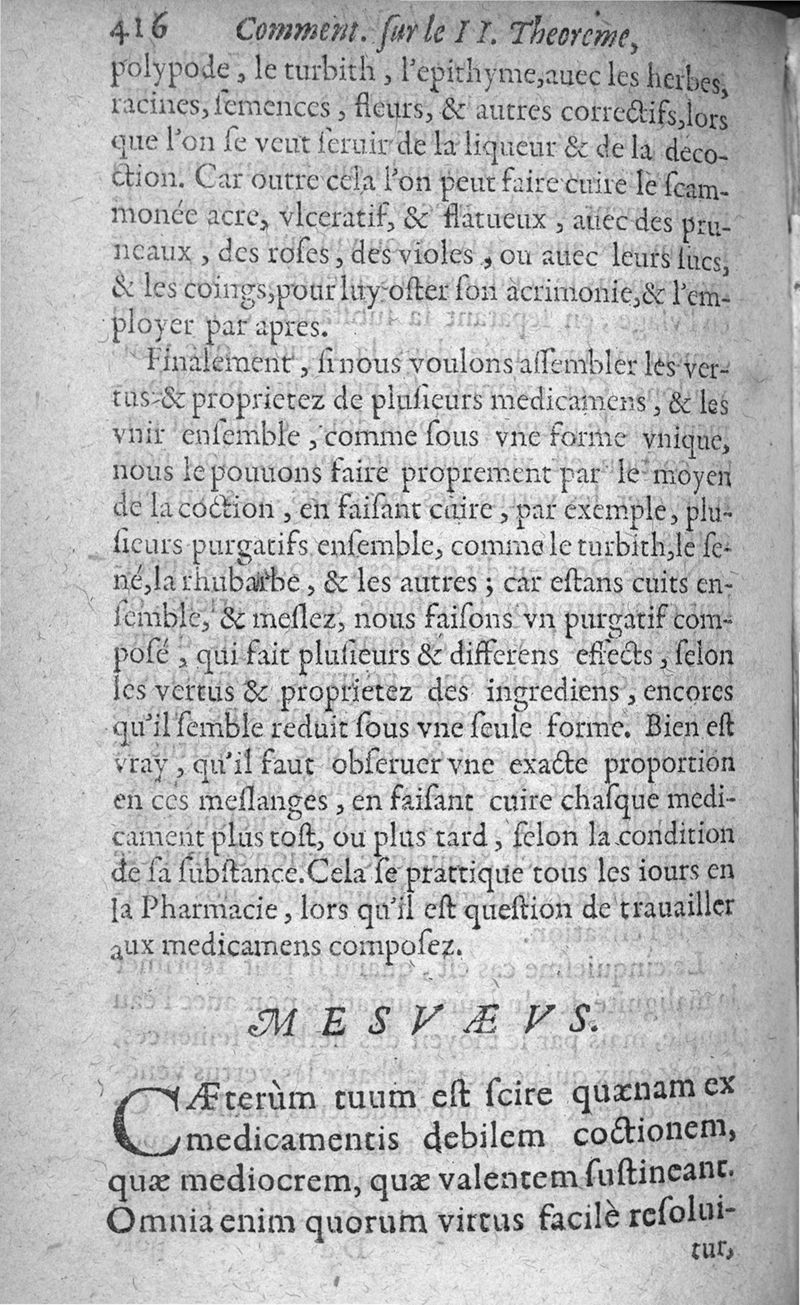 416 Comment. ſur le II. Theoreme,
polypode, le turbith, l'epithyme, auec les herbes,
racines, ſemences, fleurs, & autres correctifs, lors
que l'on ſe veut ſeruir de la liqueur & de la déco-
ction. Car outre cela l'on peut faire cuire le ſcam-
monée acre, vlceratif, & flatueux, auec des pru-
neaux, des roſes, des violes, ou auec leurs ſucs,
& les coings, pour luy oſter ſon acrimonie, & l'em-
ployer par apres.
Finalement, ſi nous voulons aſſembler les ver-
tus & proprietez de pluſieurs medicamens, & les
vnir enſemble, comme ſous vne forme vnique,
nous le pouuons faire proprement par le moyen
de la coction, en faiſant cuire, par exemple, plu-
ſieurs purgatifs enſemble, comme le turbith, le ſe-
né, la rhubarbe, & les autres ; car eſtans cuits en-
ſemble, & meſlez, nous faiſons vn purgatif com-
poſé, qui fait pluſieurs & differens effects, ſelon
les vertus & proprietez des ingrediens, encores
qu'il ſemble reduit ſous vne ſeule forme. Bien eſt
vray, qu'il faut obſeruer vne exacte proportion
en ces meſlanges, en faiſant cuire chaſque medi-
cament plus toſt, ou plus tard, ſelon la condition
de ſa ſubſtance. Cela ſe prattique tous les iours en
la Pharmacie, lors qu'il eſt queſtion de trauailler
aux medicamens compoſez.
MESVÆVS.
CÆterùm tuum eſt ſcire quænam ex
medicamentis debilem coctionem,
quæ mediocrem, quæ valentem ſuſtineant.
Omnia enim quorum virtus facilè reſolui-
tur,